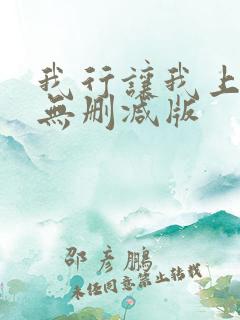 我行讓我上
無删减版
邵彥鵬
未经同意禁止转载